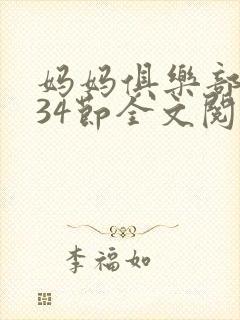 妈妈俱樂部
34節全文閱
李福如